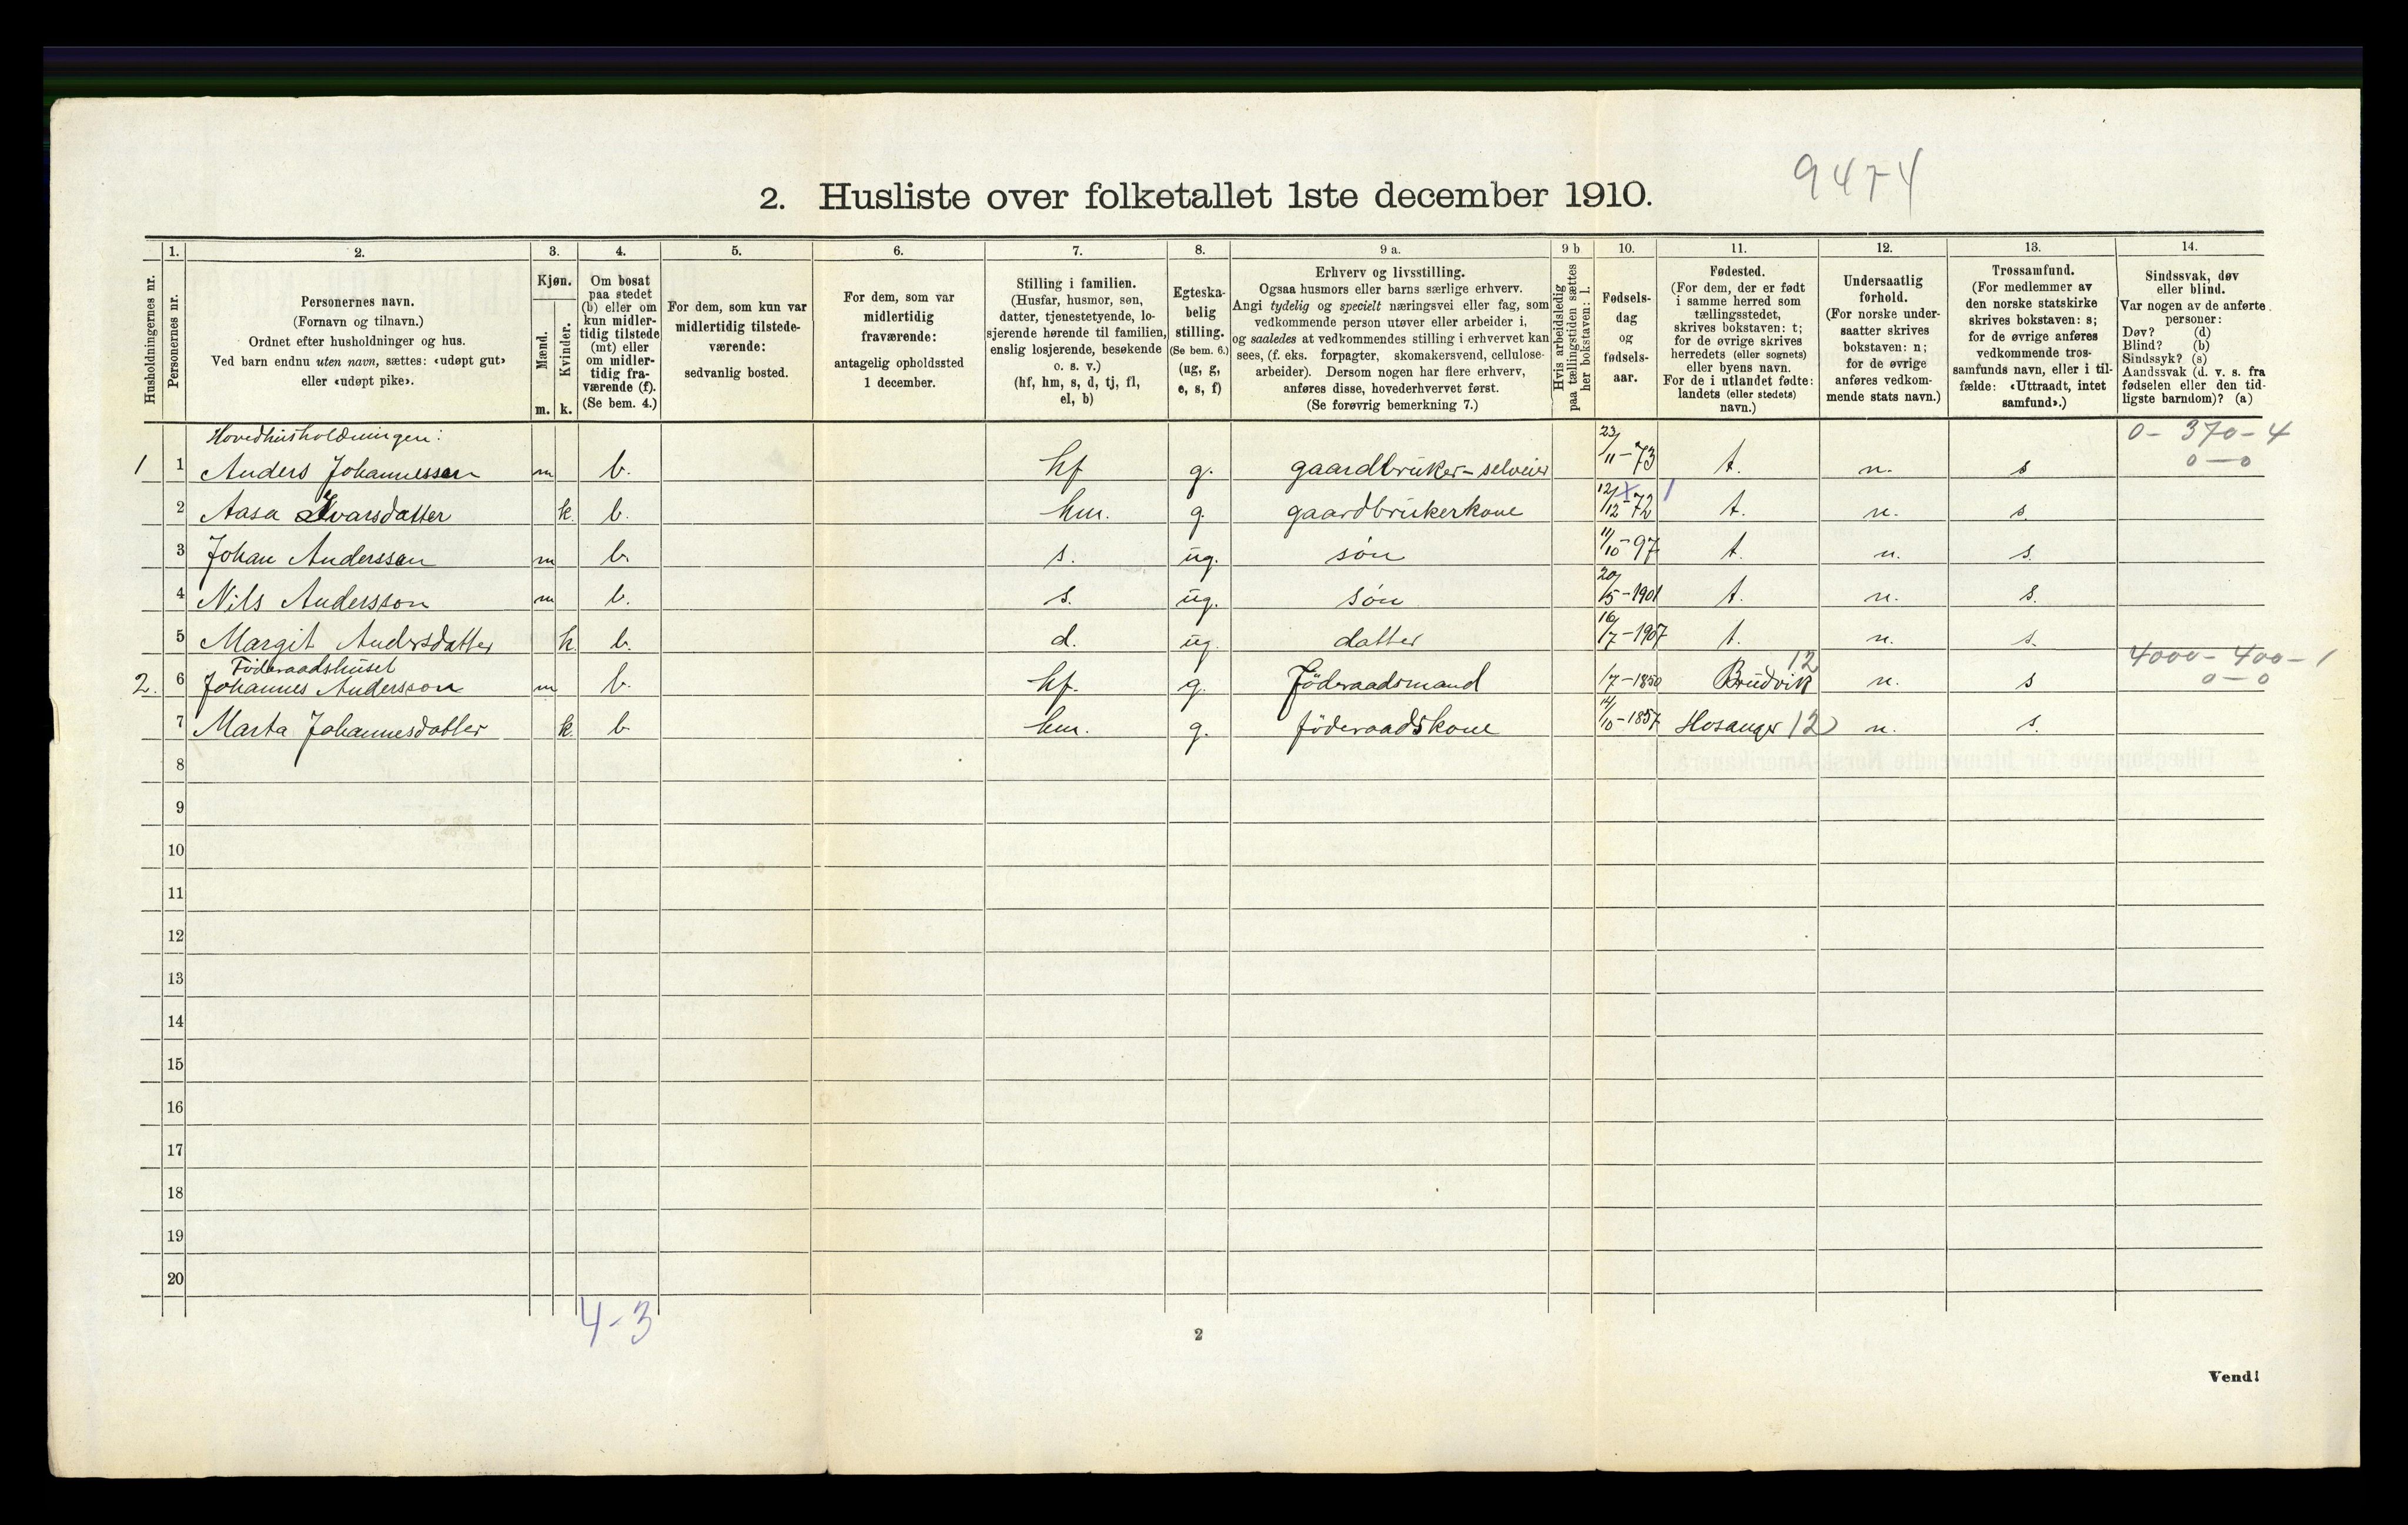 9474
2. Husliste over folketallet 1ste december 1910.
Husholdningernes nr.
1.
Personernes nr.
2.
Personernes navn.
(Fornavn og tilnavn.)
Ordnet efter husholdninger og hus.
Ved barn endnu uten navn, sættes: «udøpt gut»
eller «udøpt pike».
3.
Kjøn.
Mænd.
Kvinder.
m. k.
4.
Om bosat
paa stedet
(b) eller om
kun midler-
tidig tilstede
(mt) eller
om midler-
tidig fra-
værende (f).
(Se bem. 4.)
5.
For dem, som kun var
midlertidig tilstede-
værende:
sedvanlig bosted.
6.
For dem, som var
midlertidig
fraværende:
antagelig opholdssted
1 december.
7.
Stilling i familien.
(Husfar, husmor, søn,
datter, tjenestetyende, lo-
sjerende hørende til familien,
enslig losjerende, besøkende
o. s. v.)
(hf, hm, s, d, tj, fl,
el, b)
8.
Egteska-
belig
stilling.
(Se bem. 6.)
(ug, g,
e, s, f)
9 a.
Erhverv og livsstilling.
Ogsaa husmors eller barns særlige erhverv.
Angi tydelig og specielt næringsvei eller fag, som
vedkommende person utøver eller arbeider i,
og saaledes at vedkommendes stilling i erhvervet kan
sees, (f. eks. forpagter, skomakersvend, cellulose-
arbeider). Dersom nogen har flere erhverv,
anføres disse, hovederhvervet først.
(Se forøvrig bemerkning 7.)
9 b
Hvis arbeidsledig
paa tællingstiden sættes
her bokstaven: l.
10.
Fødsels-
dag
og
fødsels-
aar.
11.
Fødested.
(For dem, der er født
i samme herred som
tællingsstedet,
skrives bokstaven: t;
for de øvrige skrives
herredets (eller sognets)
eller byens navn.
For de i utlandet fødte:
landets (eller stedets)
navn.)
12.
Undersaatlig
forhold.
(For norske under-
saatter skrives
bokstaven: n;
for de øvrige
anføres vedkom-
mende stats navn.)
13.
Trossamfund.
(For medlemmer av
den norske statskirke
skrives bokstaven: s;
for de øvrige anføres
vedkommende tros-
samfunds navn, eller i til-
fælde: «Uttraadt, intet
samfund».)
14.
Sindssvak, døv
eller blind.
Var nogen av de anførte
personer:
Døv? (d)
Blind? (b)
Sindssyk? (s)
Aandssvak (d. v. s. fra
fødselen eller den tid-
ligste barndom)? (a)
Hovedhusholdningen: 0 - 370 - 4
1 1 Anders Johannesson m b. hf g. gaardbruker - selveier 23/11 - 73 t. n. s 0 — 0
2 Aasa Ivarsdatter k. b. hm. g. gaardbrukerkone 12/12 - 72 t. n. s.
3 Johan Andersson m b. s. ug. søn 11/10 - 97 t. n. s.
4 Nils Andersson m b. s. ug. søn 20/5 - 1901 t. n. s.
5 Margit Andersdatter k. b. d. ug. datter 16/7 - 1907 t. n. s.
Føderaadshuset 12 4000 - 400 - 1
2. 6 Johannes Andersson m b. hf. g. Føderaadsmand 1/7 - 1850 Brudvik n. s 0 — 0
7 Marta Johannesdatter k. b hm. g. føderaadskone 14/10 - 1857 Hosanger 12 n. s.
8
9
10
11
12
13
14
15
16
17
18
19
20
4 - 3
2
Vend!